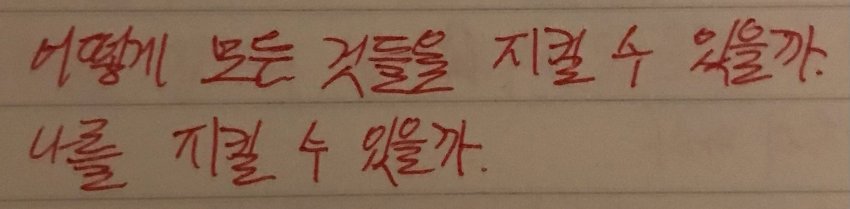 어떻게 모든 것들을 지킬 수 있을까.
나를 지킬 수 있을까.